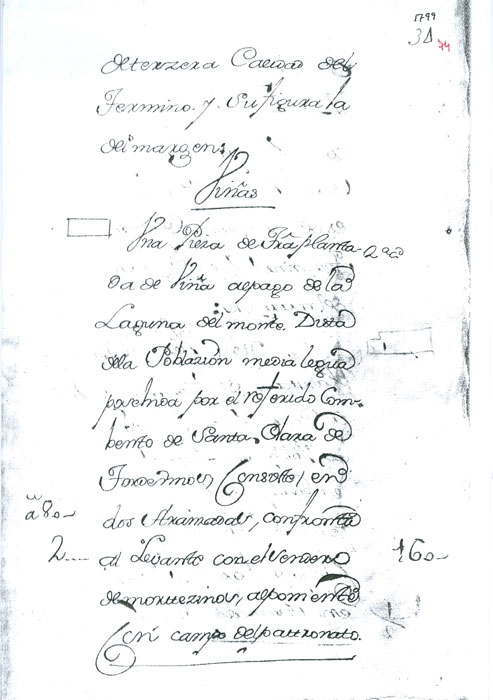 1799
31 74
de terzera Calidad del
Termino. y Su figura la
del margen;
Viñas
Una Pieza de Trã planta- 2ª cª
da de Viñã al pago de la
Laguna del monte. Dista
de la Poblazion media legua
posehida por el referido Com-
bento de Santa Clara de
Consiste, en
aª 80-
dos Aranzadas, confronta
2.... al Levante con el Sendero 160-
de morttezinos, al poniente
Con campo del pattronato.